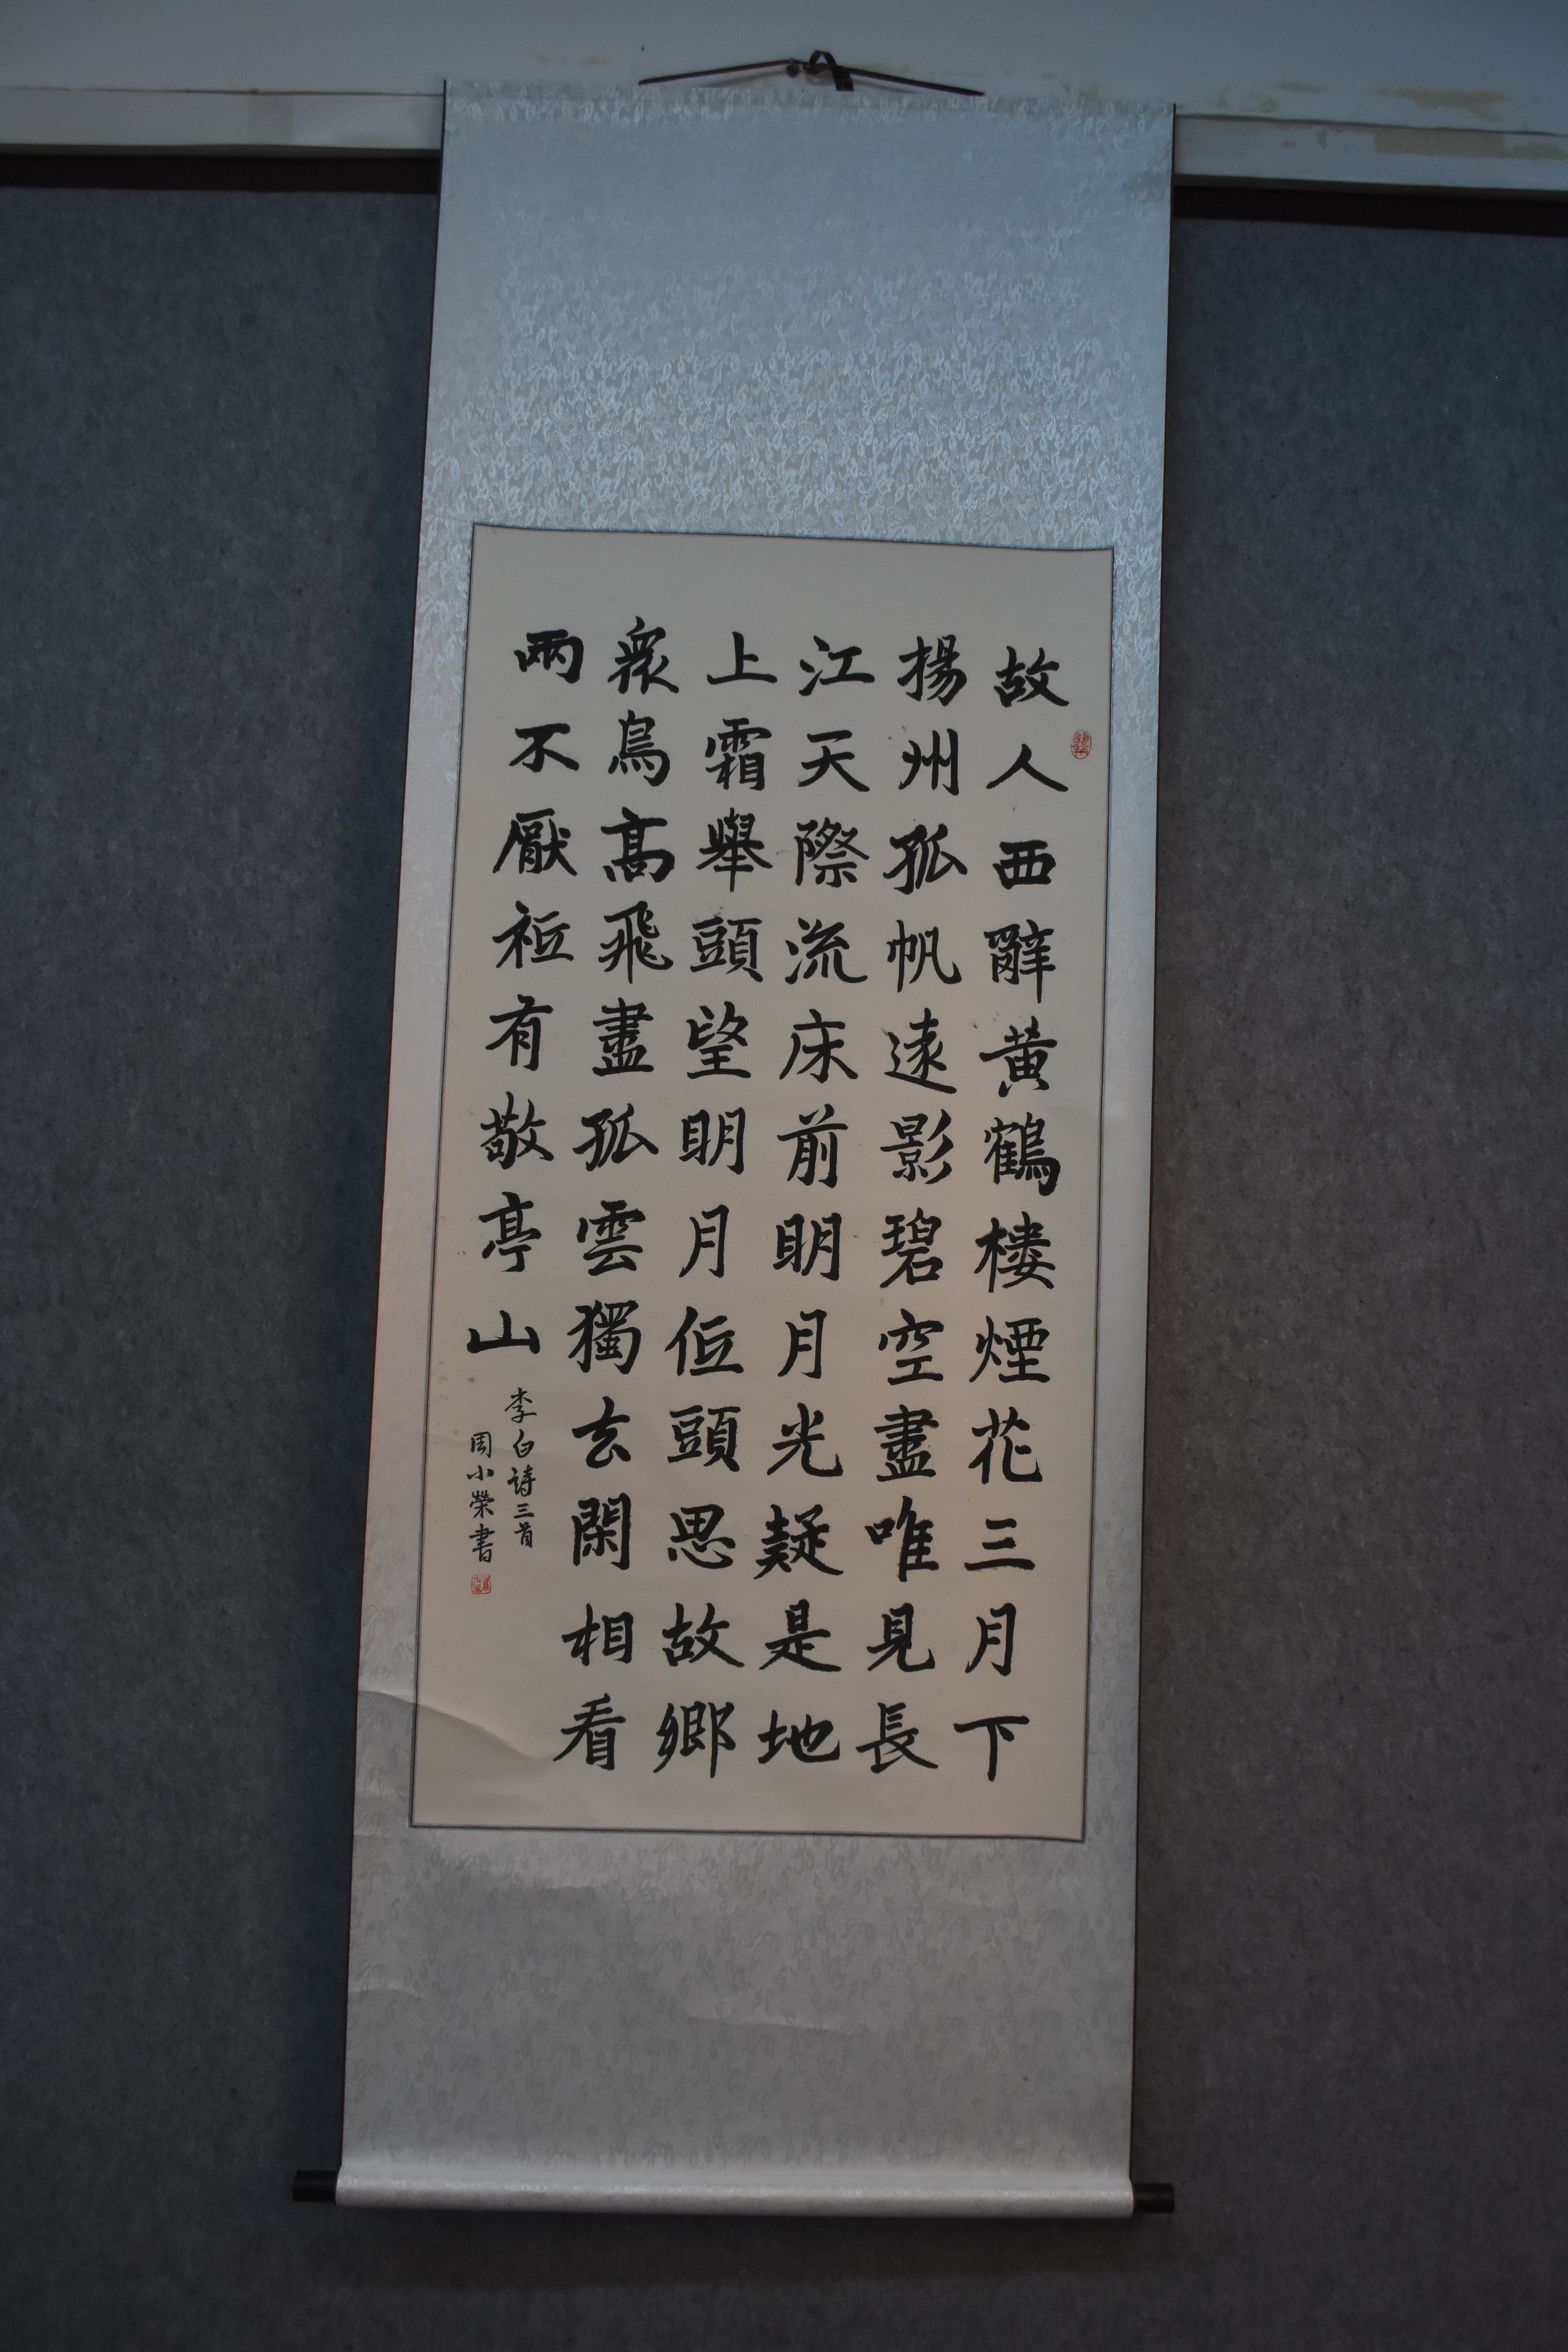 故人西辭黄鶴樓煙花三月下
揚州孤帆遠影碧空盡唯見長
江天際流床前明月光疑是地
上霜舉頭望明月低頭思故鄉
衆鳥高飛盡孤雲獨去閑相看
兩不厭祗有敬亭山
李白詩三首
周小榮書